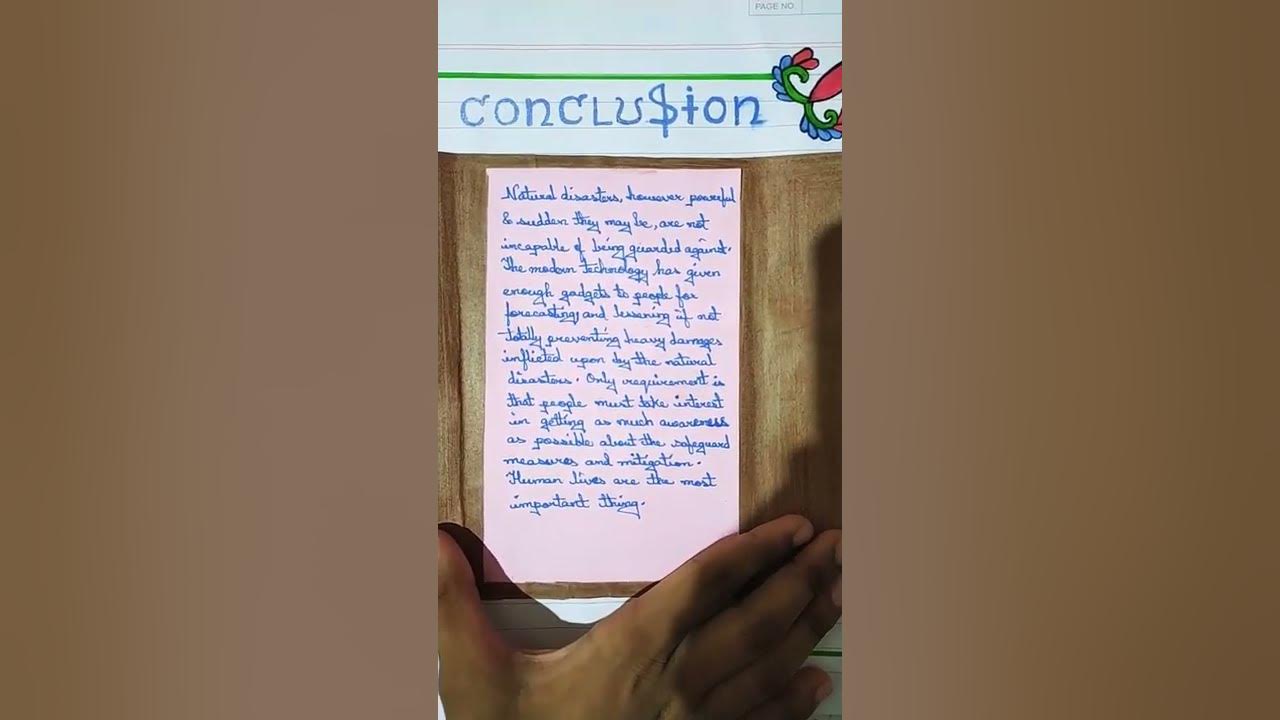 PAGE NO.
CONCLU$ION
Natural disasters, however powerful
& sudden they may be, are not
incapable of being guarded against.
The modern technology has given
enough gadgets to people for
forecasting and lessening if not
totally preventing heavy damages
inflicted upon by the natural
disasters. Only requirement is
that people must take interest
in getting as much awareness
as possible about the safeguard
measures and mitigation.
Human lives are the most
important thing.